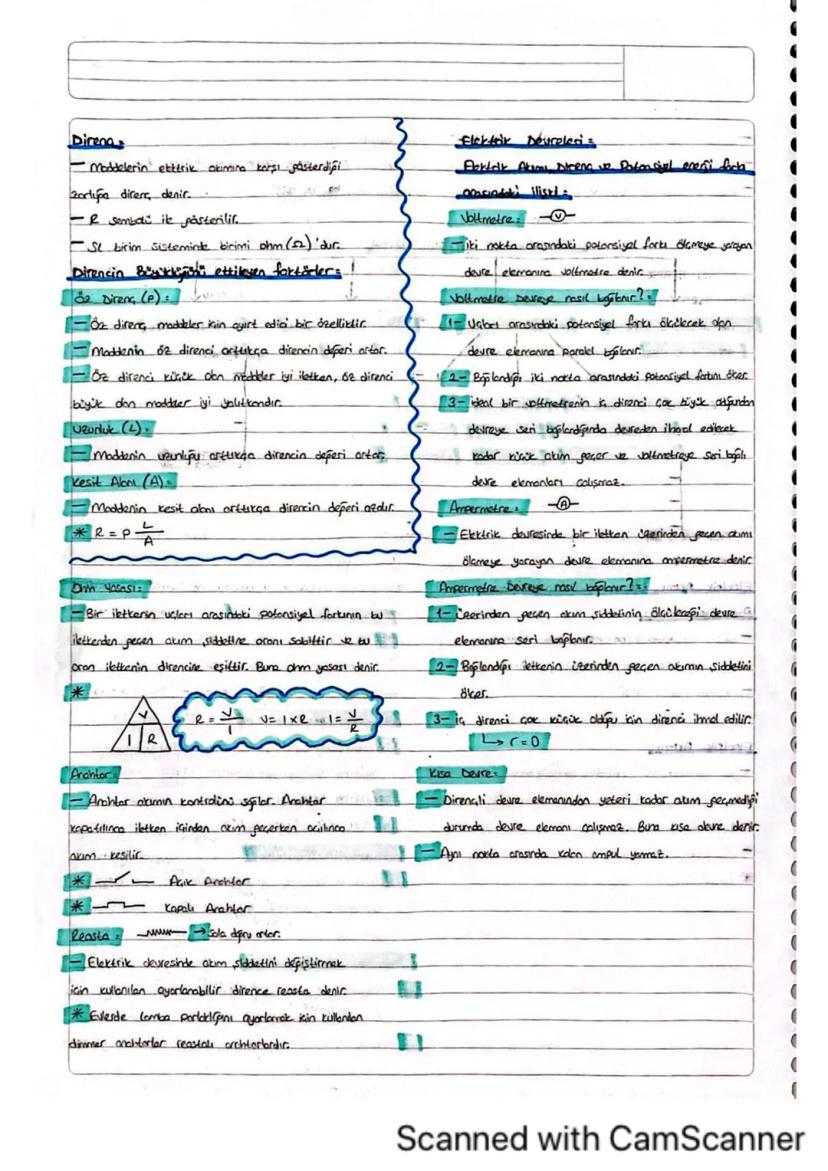 Direnç:
— Maddelerin elektrik akımına karşı gösterdiği
zorluğa direnç denir.
— R sembolü ile gösterilir.
— SI birim sisteminde birimi ohm (Ω)'dur.
Direncin Büyüklüğünü etkileyen faktörler:
Öz Direnç (P):
— Öz direnç, maddeler için ayırt edici bir özelliktir.
— Maddenin öz direnci arttıkça direncin değeri artar.
— Öz direnci küçük olan maddeler iyi iletken, öz direnci
büyük olan maddeler iyi yalıtkandır.
Uzunluk (L):
— Maddenin uzunluğu arttıkça direncin değeri artar.
Kesit Alanı (A):
— Maddenin kesit alanı arttıkça direncin değeri azalır.
* R = P L/A
Ohm Yasası:
— Bir iletkenin uçları arasındaki potansiyel farkının bu
iletkenden geçen akım şiddetine oranı sabittir ve bu
oran iletkenin direncine eşittir. Buna ohm yasası denir.
*
V
I R
R = V/I V = I x R I = V/R
Anahtar:
— Anahtar akımın kontrolünü sağlar. Anahtar
kapatılınca iletken içinden akım geçerken açılınca
akım kesilir.
* Açık Anahtar
* Kapalı Anahtar
Reosta: → Sola doğru artar.
— Elektrik devresinde akım şiddetini değiştirmek
için kullanılan ayarlanabilir dirence reosta denir.
* Evlerde lamba parlaklığını ayarlamak için kullanılan
dimmer anahtarlar reostalı anahtarlardır.
Elektrik Devreleri:
Elektrik Akımı, Direnç ve Potansiyel enerji farkı
arasındaki ilişki:
Voltmetre: V
— İki nokta arasındaki potansiyel farkı ölçmeye yarayan
devre elemanına voltmetre denir.
Voltmetre Devreye nasıl bağlanır?:
1- Uçları arasındaki potansiyel farkı ölçülecek olan
devre elemanına paralel bağlanır.
2- Bağlandığı iki nokta arasındaki potansiyel farkını ölçer.
3- ideal bir voltmetrenin iç direnci çok büyük olduğundan
devreye seri bağlandığında devreden ihmal edilecek
kadar küçük akım geçer ve voltmetreye seri bağlı
devre elemanları çalışmaz.
Ampermetre: A
— Elektrik devresinde bir iletken üzerinden geçen akımı
ölçmeye yarayan devre elemanına ampermetre denir.
Ampermetre Devreye nasıl bağlanır?:
1- Üzerinden geçen akım şiddetinin ölçüleceği devre
elemanına seri bağlanır.
2- Bağlandığı iletkenin üzerinden geçen akımın şiddetini
ölçer.
3- iç direnci çok küçük olduğu için direnci ihmal edilir.
↳ r = 0
Kısa Devre:
— Dirençli devre elemanından yeteri kadar akım geçmediği
durumda devre elemanı çalışmaz. Buna kısa devre denir.
— Aynı nokta arasında kalan ampul yanmaz.
Scanned with CamScanner